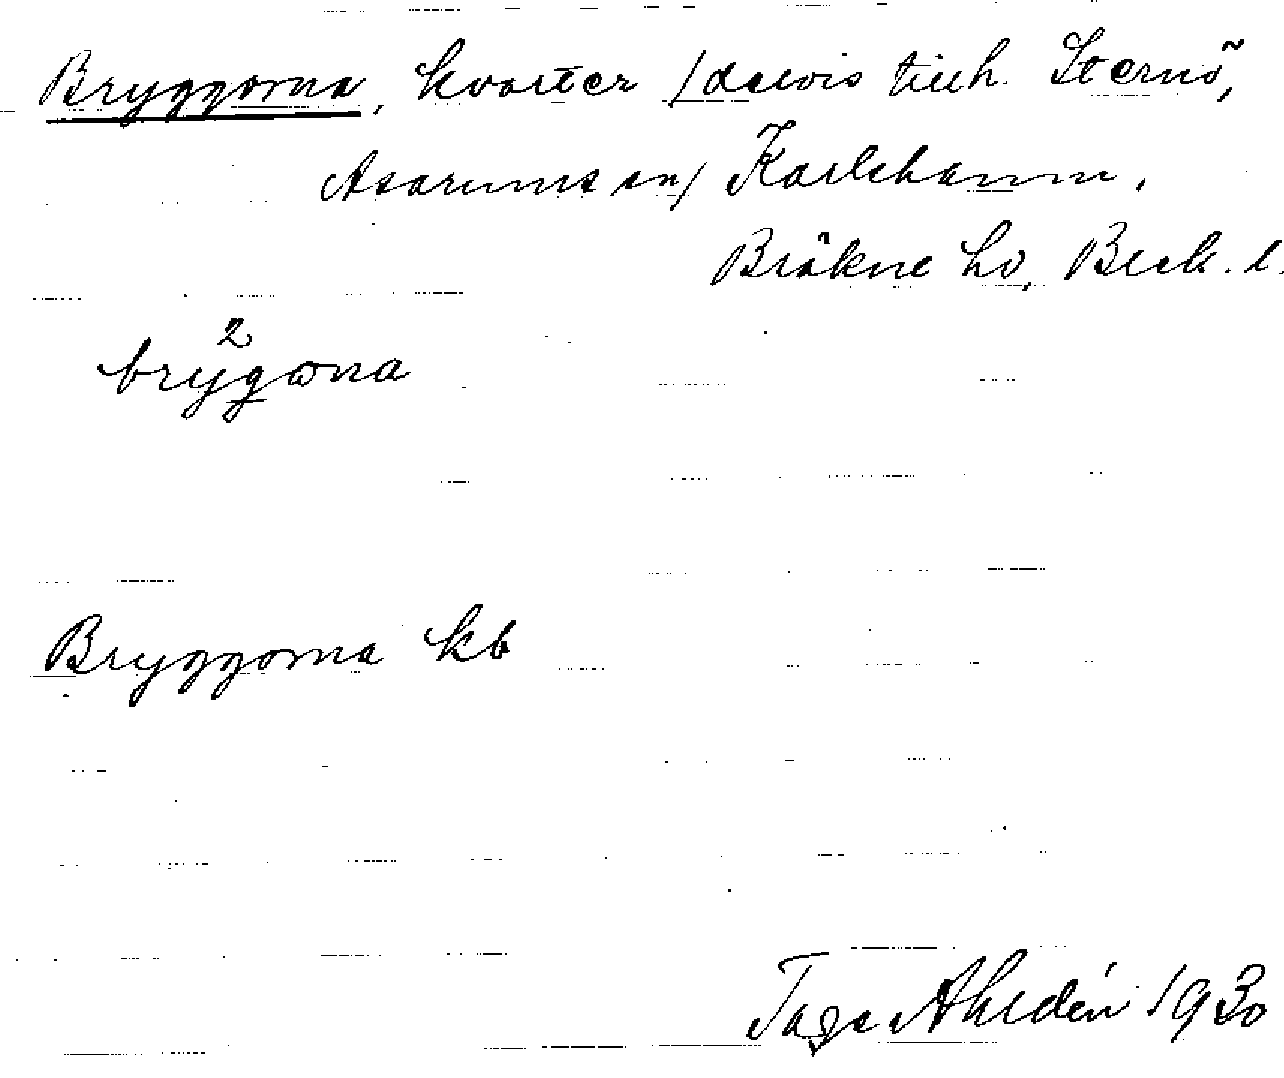 Bryggorna, kvarter /delvis tillh. Sternö,
Asarums sn/ Karlshamn,
Bräkne hd, Blek. l.
2
brygωna
Bryggorna kb
Tage Ahldén 1930